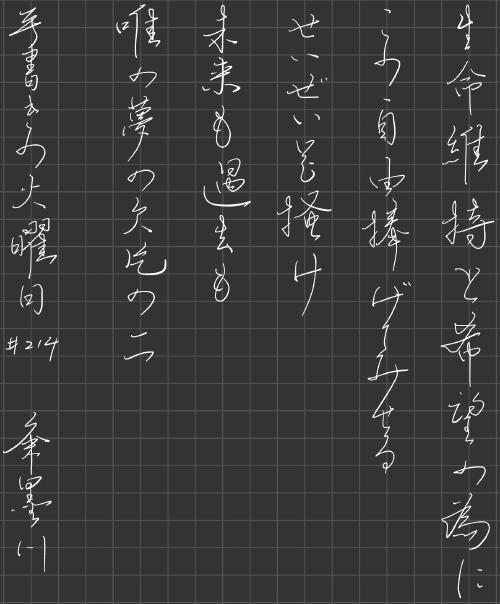 生命維持と希望の為に
この自由捧げてみせる
せいぜい足掻け
未来も過去も
唯の夢の欠片の二つ
手書きの火曜日
#214
墨川